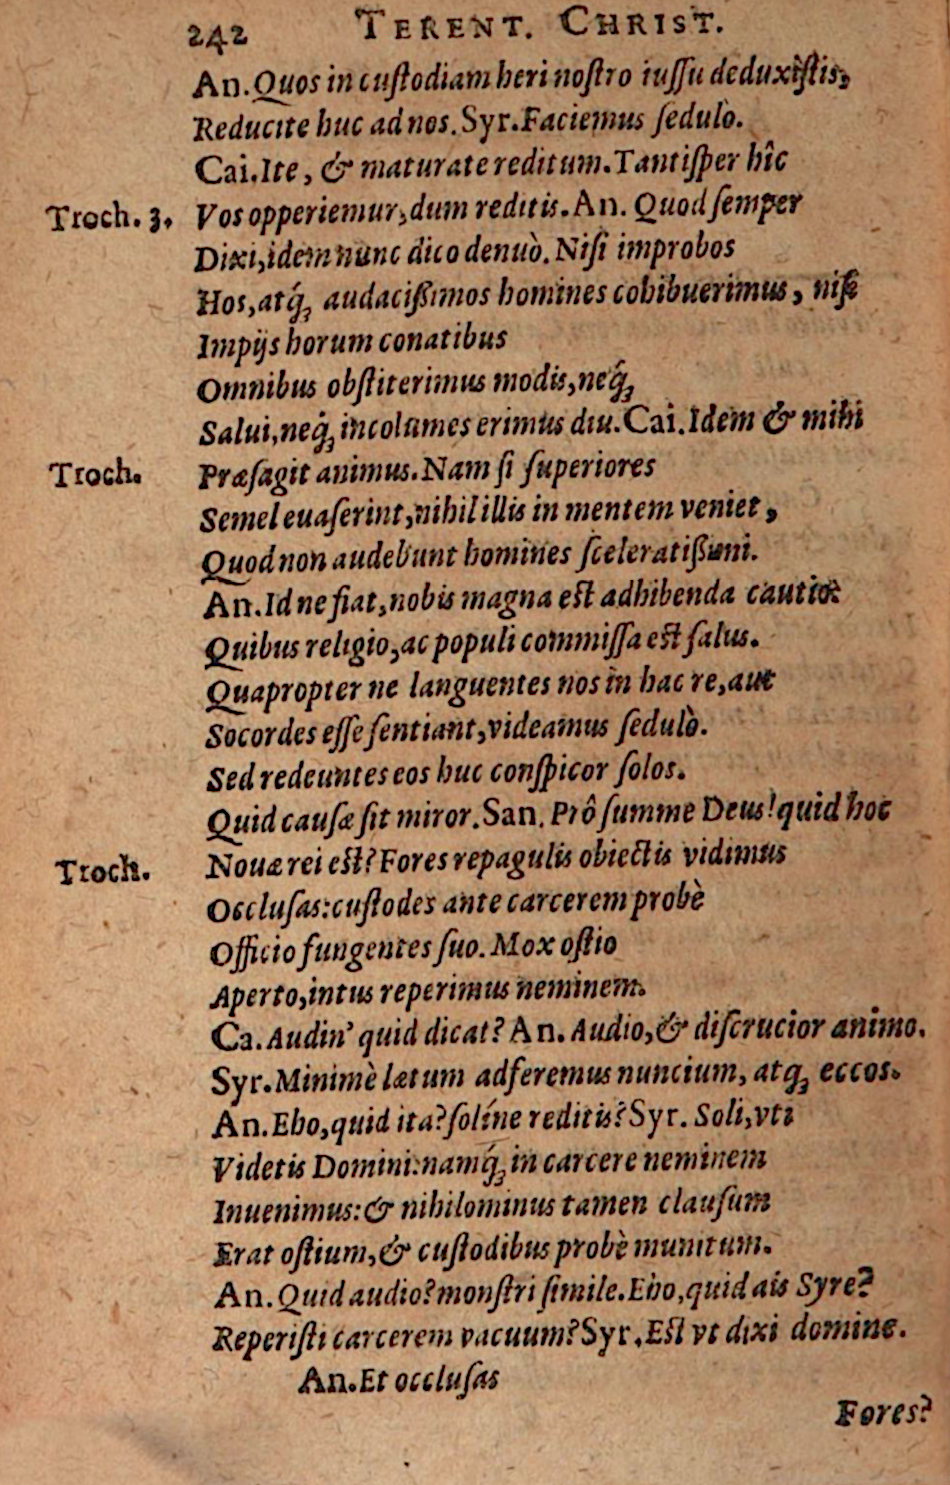 242 TERENT. CHRIST.
An. Quos in cuſtodiam heri noſtro iuſſu deduxiſtis,
Reducite huc ad nos. Syr. Faciemus ſedulò.
Cai. Ite, & maturate reditum. Tantiſper hîc
Troch. 3. Vos opperiemur, dum reditis. An. Quod ſemper
Dixi, idem nunc dico denuò. Niſi improbos
Hos, atq́; audacißimos homines cohibuerimus, niſi
Impijs horum conatibus
Omnibus obſtiterimus modis, neq́;
Salui, neq́; incolumes erimus diu. Cai. Idem & mihi
Troch. Præſagit animus. Nam ſi ſuperiores
Semel euaſerint, nihil illis in mentem veniet,
Quod non audebunt homines ſceleratißimi.
An. Id ne fiat, nobis magna eſt adhibenda cautio:
Quibus religio, ac populi commiſſa eſt ſalus.
Quapropter ne languentes nos in hac re, aut
Socordes eſſe ſentiant, videamus ſedulò.
Sed redeuntes eos huc conſpicor ſolos.
Quid cauſæ ſit miror. San. Prô ſumme Deus! quid hoc
Troch. Nouæ rei eſt? Fores repagulis obiectis vidimus
Occluſas: cuſtodes ante carcerem probè
Officio fungentes ſuo. Mox oſtio
Aperto, intus reperimus neminem.
Ca. Audin' quid dicat? An. Audio, & diſcrucior animo.
Syr. Minimè lætum adferemus nuncium, atq; eccos.
An. Eho, quid ita? ſolíne reditis? Syr. Soli, vti
Videtis Domini: namq́; in carcere neminem
Inuenimus: & nihilominus tamen clauſum
Erat oſtium, & cuſtodibus probè munitum.
An. Quid audio? monſtri ſimile. Eho, quid ais Syre?
Reperiſti carcerem vacuum? Syr. Eſt vt dixi domine.
An. Et occluſas
Fores?